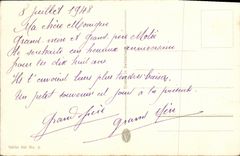 8 juillet 1948
Ma chère Monique
Grand mère et Grand père
te souhaite un heureux anniversaire
pour tes dix huit ans
Ils t'envoient leurs plus tendres baisers
Un petit souvenir est joint à la présente
Grand mère
Grand Père